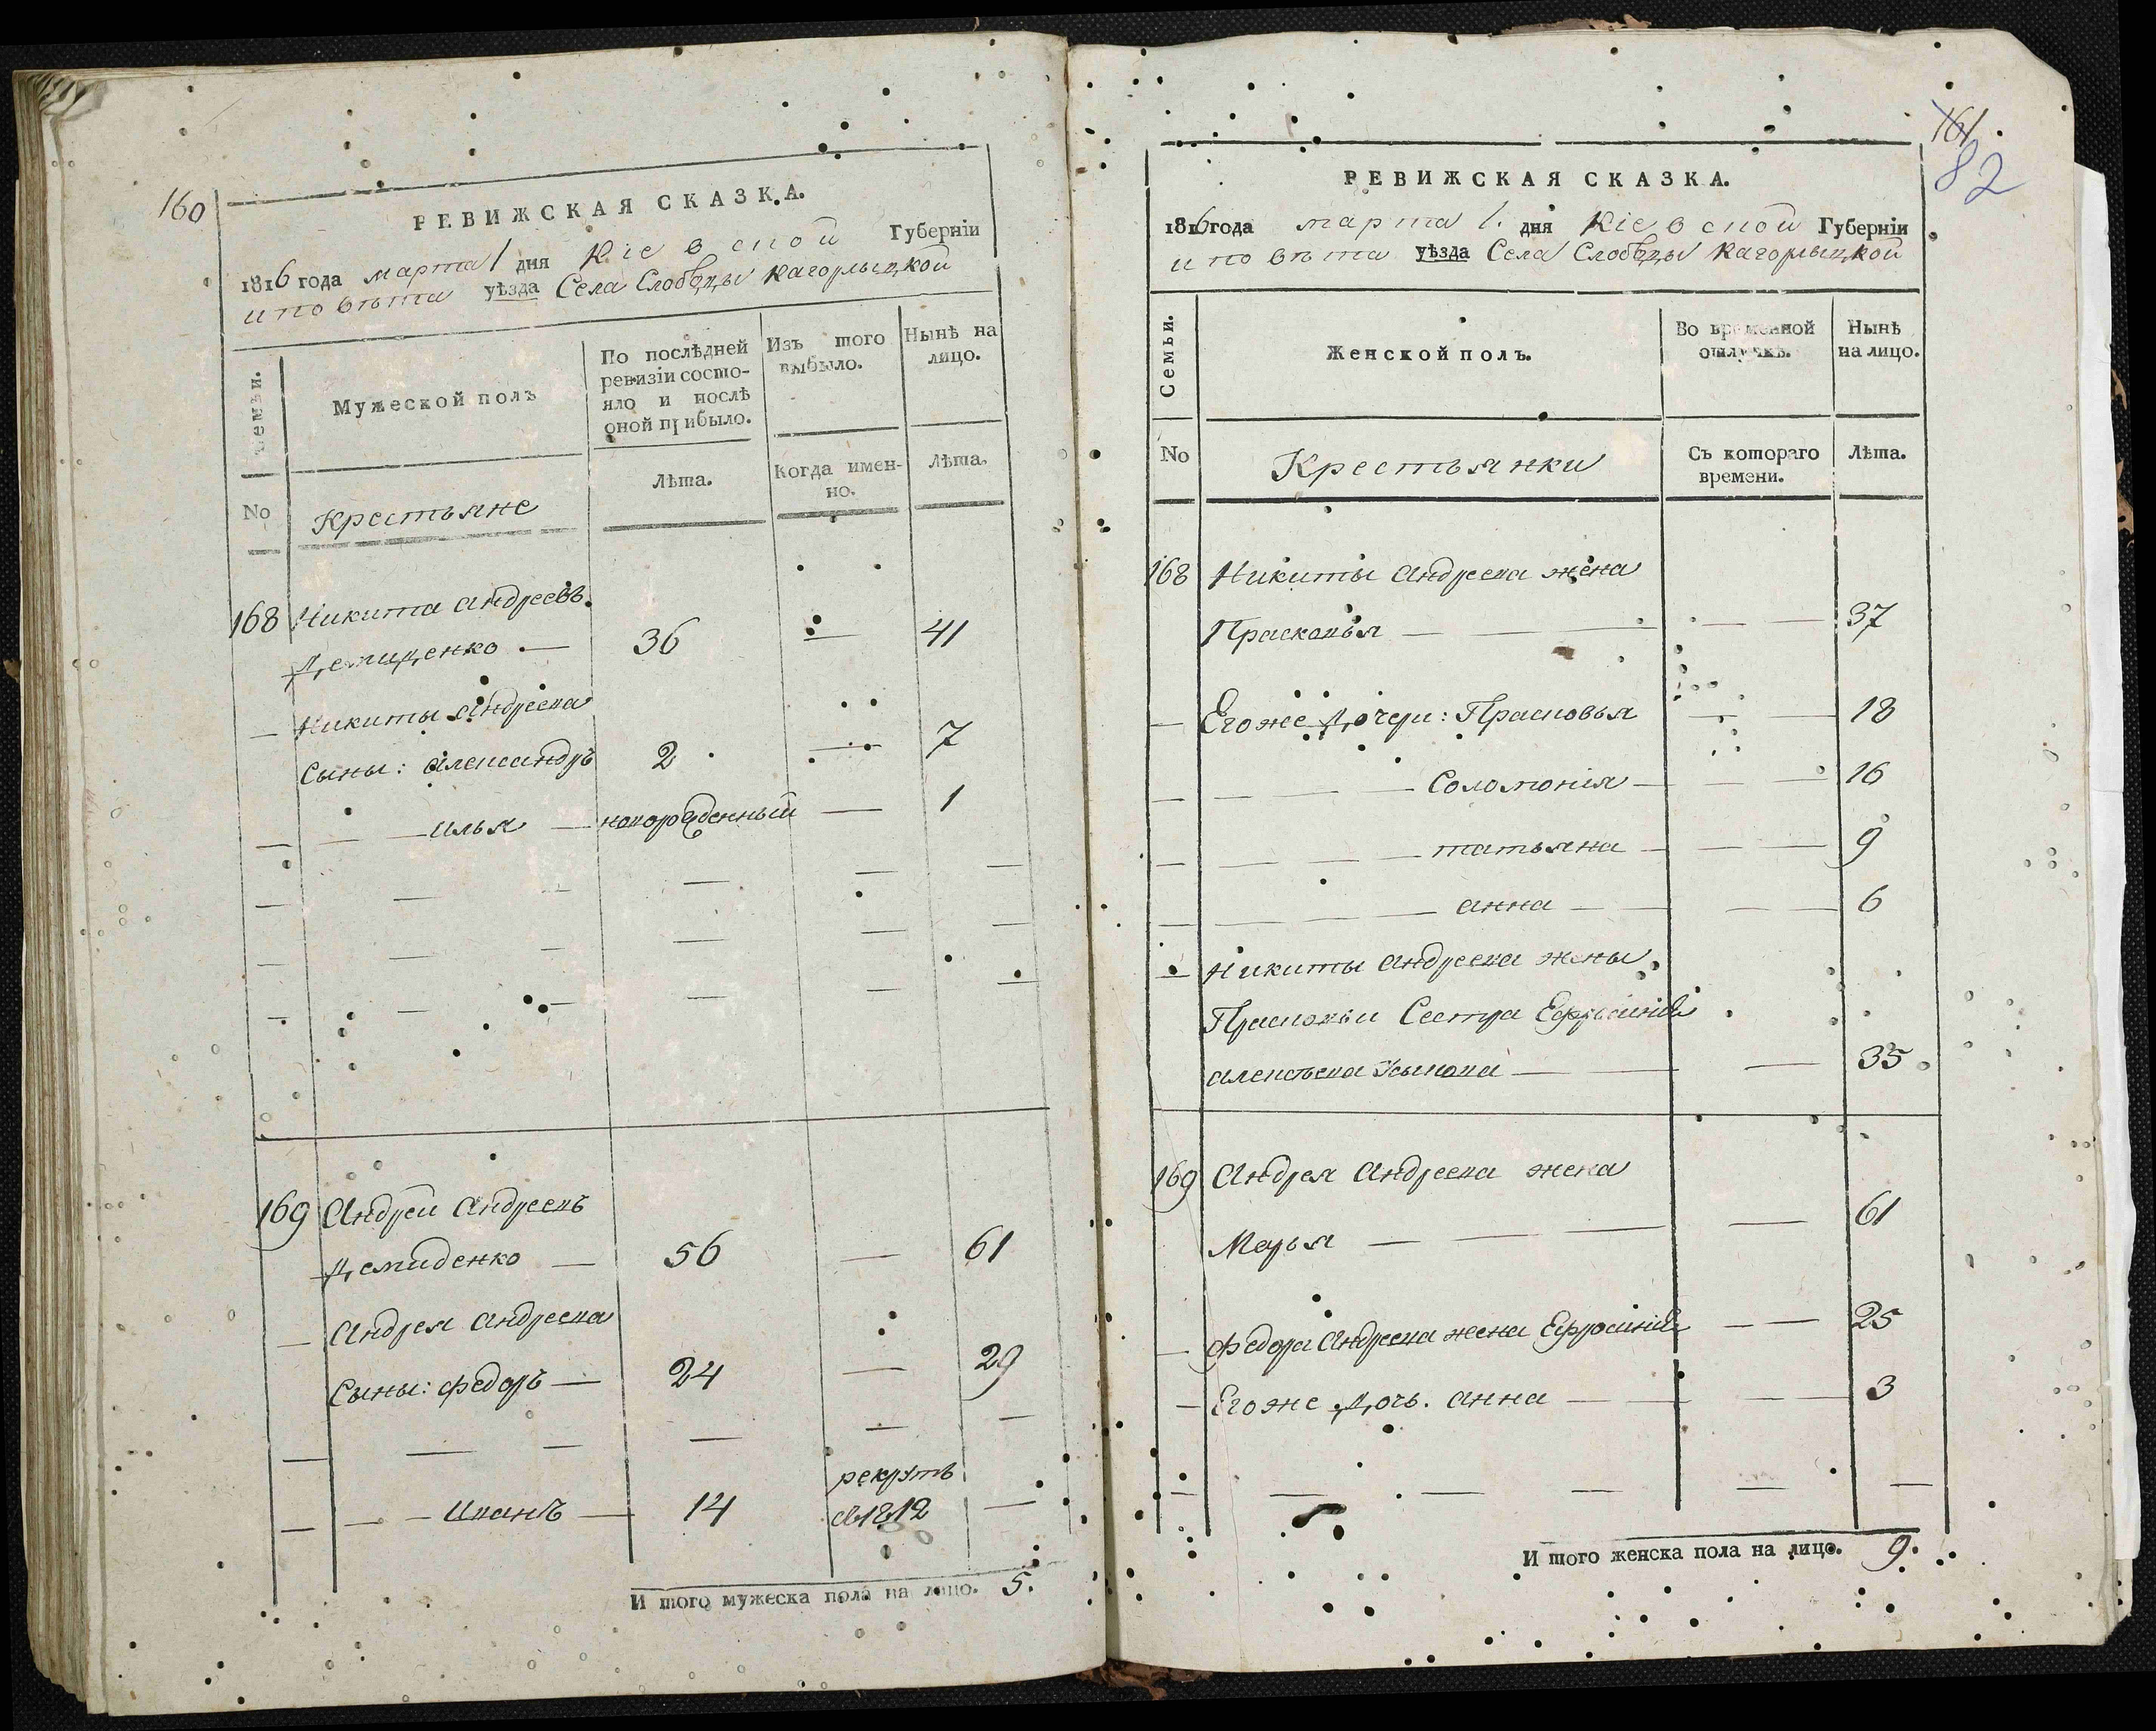 160
РЕВИЖСКАЯ СКАЗКА.
1816 года марта 1 дня Кіевской Губерніи
и повѣта уѣзда Села Слободы Кагорлыцкой
Семьи.
Мужеской полъ
По послѣдней ревизіи состо-
яло и послѣ
оной прибыло.
Изъ того
выбыло.
Нынѣ на
лицо.
No
Крестьяне
Лѣта.
Когда имен-
но.
Лѣта.
168 Никита Андреевъ
Демиденко — 36 — 41
— Никиты Андреева
Сыны: Александръ 2 — 7
— — — Илья — новорожденный — 1
169 Андрей Андреевъ
Демиденко — 56 — 61
— Андрея Андреева
Сыны: Федоръ — 24 — 29
рекрутъ
— — — Иванъ — 14 въ 1812 —
И того мужеска пола на лицо. 5.
161
82
РЕВИЖСКАЯ СКАЗКА.
1816 года марта 1. дня Кіевской Губерніи
и повѣта уѣзда Села Слободы Кагорлыцкой
Семьи.
Женской полъ.
Во временной
отлучкѣ.
Нынѣ
на лицо.
No
Крестьянки
Съ котораго
времени.
Лѣта.
168 Никиты Андреева жена
Прасковья — — — 37
— Его же дочери: Прасковья — — 18
— — — — Соломонія — — — 16
— — — — Татьяна — — — 9
— — — — Анна — — — 6
— Никиты Андреева жены
Прасковьи Сестра Ефросинія
Алексѣева — — — 35
169 Андрея Андреева жена
Марья — — — — 61
— Федора Андреева жена Ефросинія — — 25
— Его же дочь. Анна — — — 3
И того женска пола на лицо. 9.